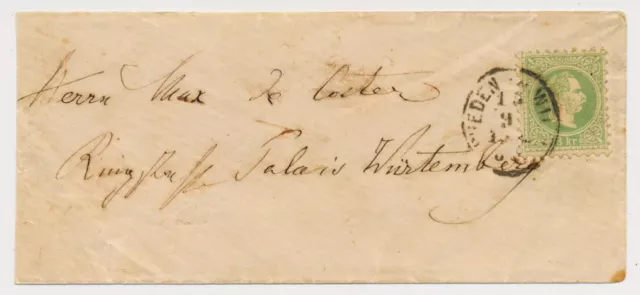 Herrn Max de Coster
Ringstrasse Palais Würtemberg
WIEDEN IN WIEN
13
9
KR